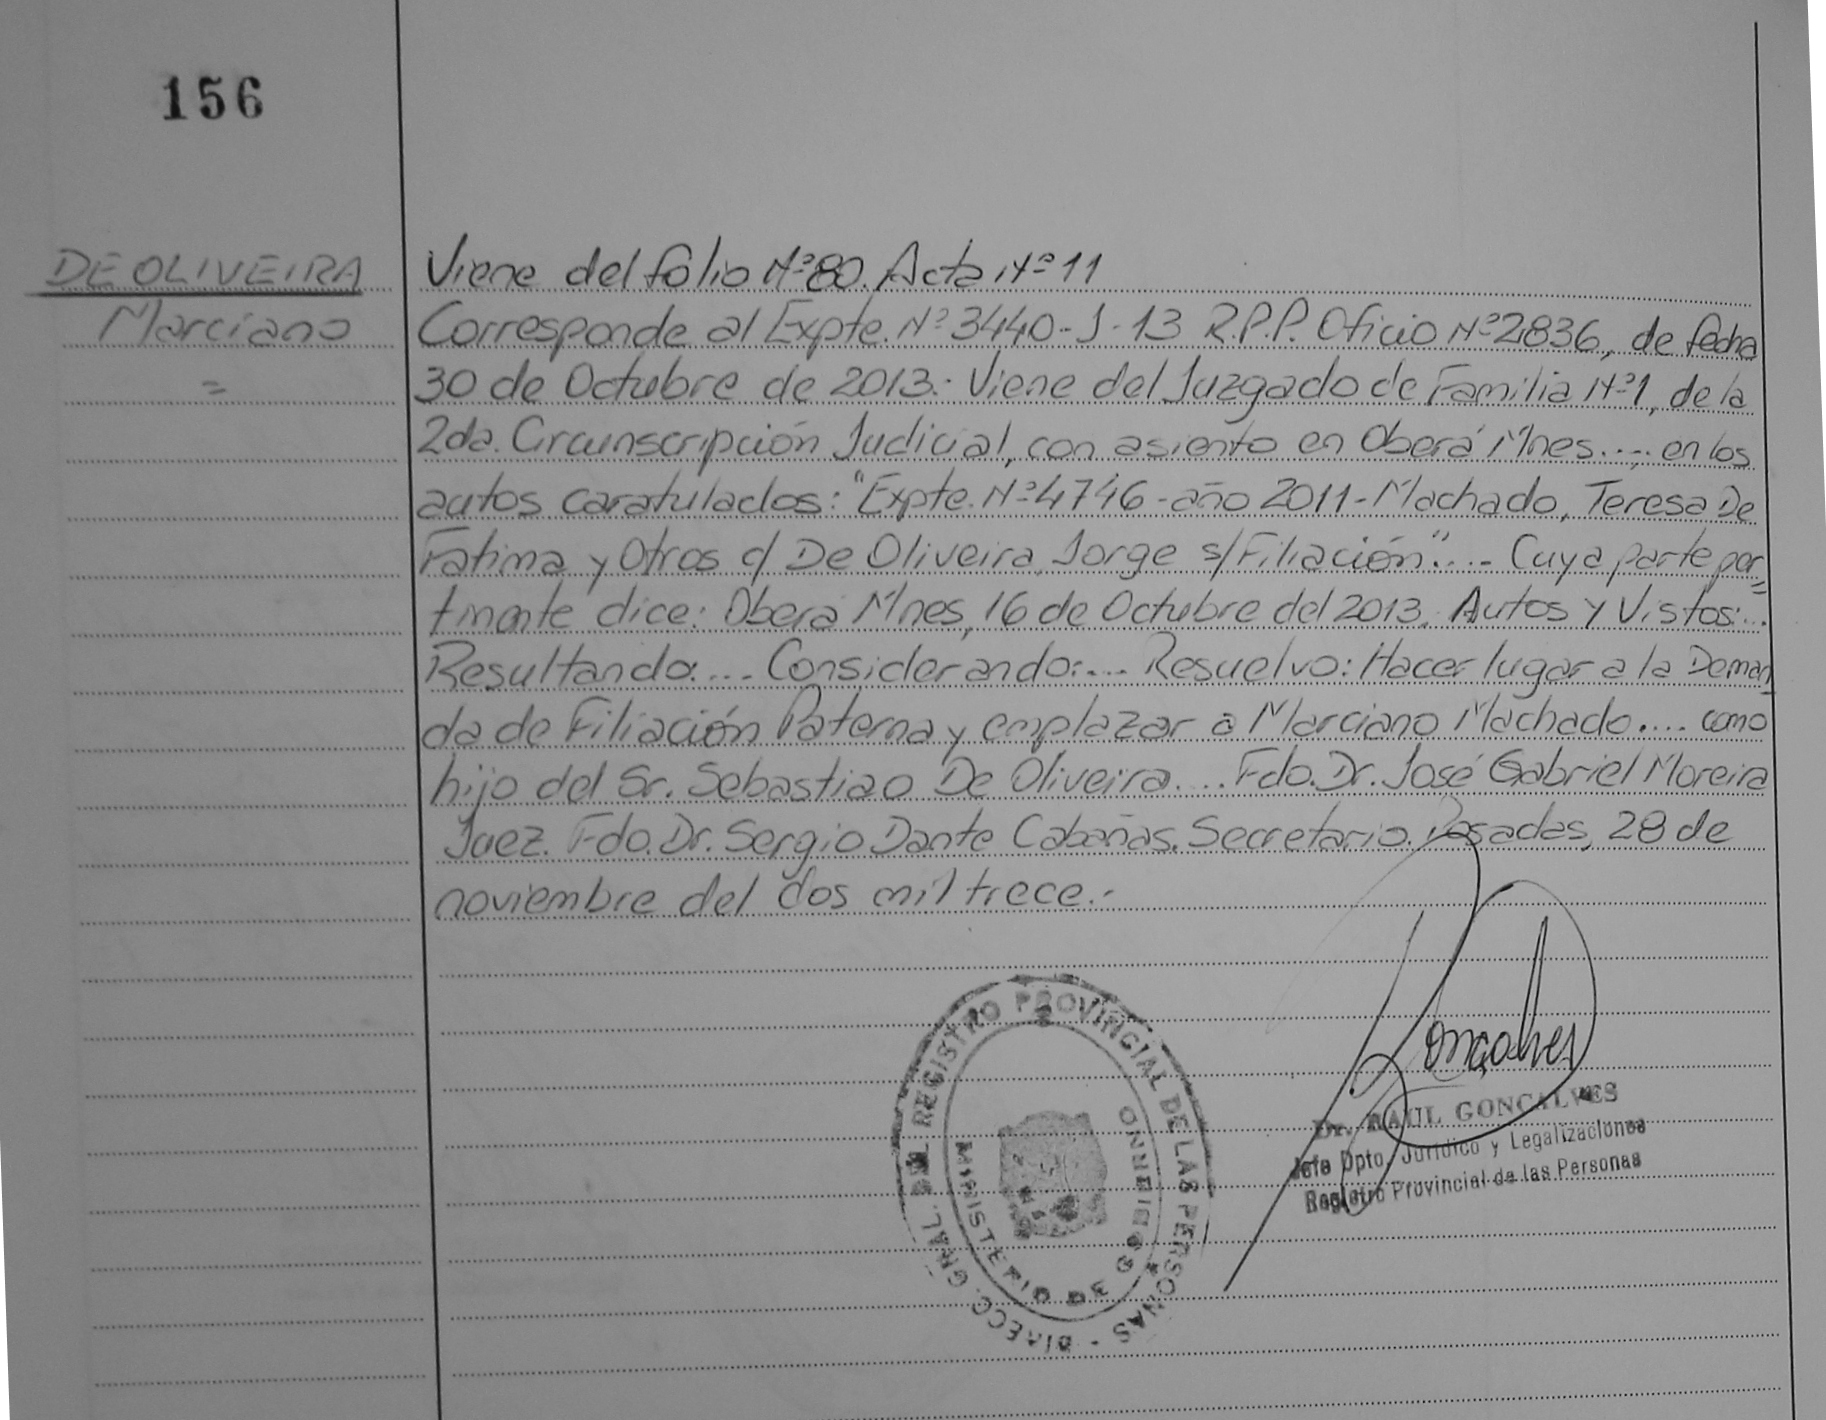 156
DE OLIVEIRA
Marciano
=
Viene del folio Nº 80. Acta Nº 11
Corresponde al Expte. Nº 3440-J-13 R.P.P. Oficio Nº 2836, de fecha
30 de Octubre de 2013.- Viene del Juzgado de Familia Nº 1, de la
2da. Circunscripción Judicial, con asiento en Oberá Mnes....; en los
autos caratulados: "Expte. Nº 4746-año 2011-Machado, Teresa De
Fatima y Otros c/ De Oliveira, Jorge s/Filiación".... Cuya parte per=
tinente dice: Oberá Mnes, 16 de Octubre del 2013. Autos y Vistos:...
Resultando:.... Considerando:.... Resuelvo: Hacer lugar a la Deman=
da de Filiación Paterna y emplazar a Marciano Machado.... como
hijo del Sr. Sebastiao De Oliveira.... Fdo. Dr. José Gabriel Moreira
Juez. Fdo. Dr. Sergio Dante Cabañas. Secretario. Posadas, 28 de
noviembre del dos mil trece.-
DIRECC. GRAL. DEL REGISTRO PROVINCIAL DE LAS PERSONAS -
MINISTERIO DE GOBIERNO
Goncalves
Dr. RAUL GONCALVES
Jefe Dpto. Jurídico y Legalizaciones
Registro Provincial de las Personas